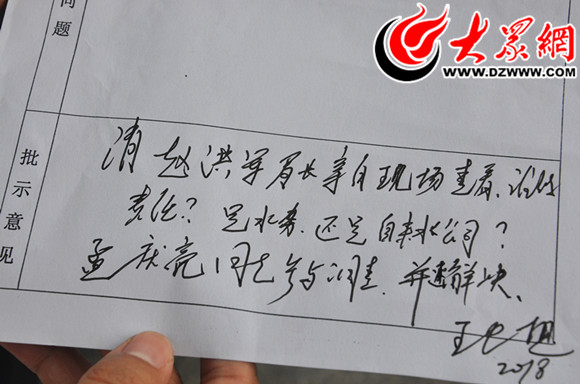 问题
大众網
WWW.DZWWW.COM
批示意见
请赵洪军局长亲自现场查看、谁的
责任？是水务、还是自来水公司？
孟庆亮同志参与调查、并解决、
王
2018